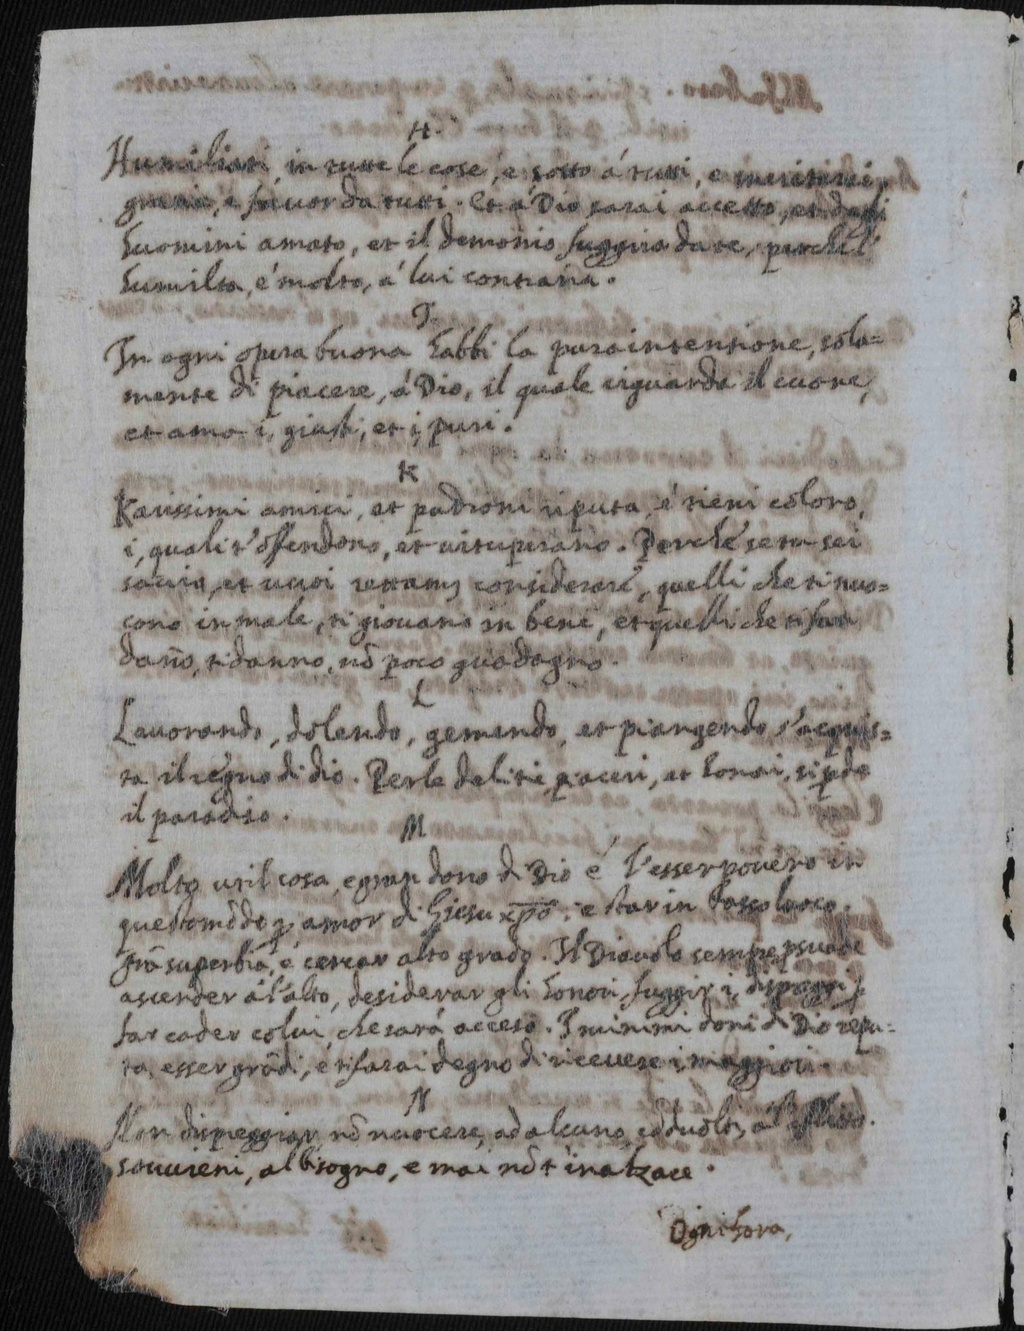 H.
Humiliati in tutte le cose, e sotto á tutti, e meriterai
gratia, e favor da tutti. Et á Dio sarai accetto, et dagli
huomini amato, et il demonio fuggira da te, perche l'
humilta, é molto, á lui contraria.
I.
In ogni opera buona habbi la pura intentione, sola=
mente di piacere, á Dio, il quale riguarda il cuore,
et ama i, giusti, et i, puri.
K
Karissimi amici, et padroni riputa, é tieni coloro,
i, quali t'offendono, et vituperano. Perche se tu sei
savio, et vuoi considerare, quelli che ti nuo=
cono in male, ti giovano in bene, et quelli che ti fan
dan̄o, ti danno, nō poco guadagno.
L
Lavorando, dolendo, gemendo, et piangendo s'acquis=
ta il regno di dio. Per le delitie, piaceri, et honori, si pde
il paradiso.
M
Molto util cosa, e gran dono di Dio é l'esser povero in
questo mōdo p amor di Giesu xp̄o, e star in basso luoco.
grā superbia, é cercar alto grado. Il Diavolo sempre psuade
ascender á l'alto, desiderar gli honori, fuggir i, dispreggi, p
far cader colui, che sará acceso. I minimi doni di Dio repu=
ta, esser grādi, e ti farai degno di ricevere i maggiori.
N
Non dispreggiar, nō nuocere, ad alcuno,
souvieni, al bisogno, e mai nō t'inalzare.
Ogni hora,